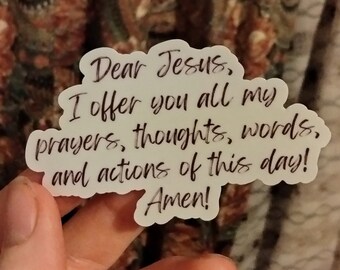 Dear Jesus,
I offer you all my
prayers, thoughts, words,
and actions of this day!
Amen!